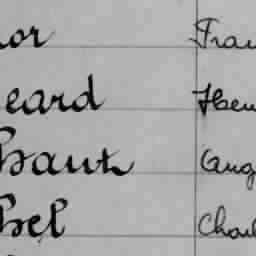 or Fran
eard Hen
haut Aug
bel Charl